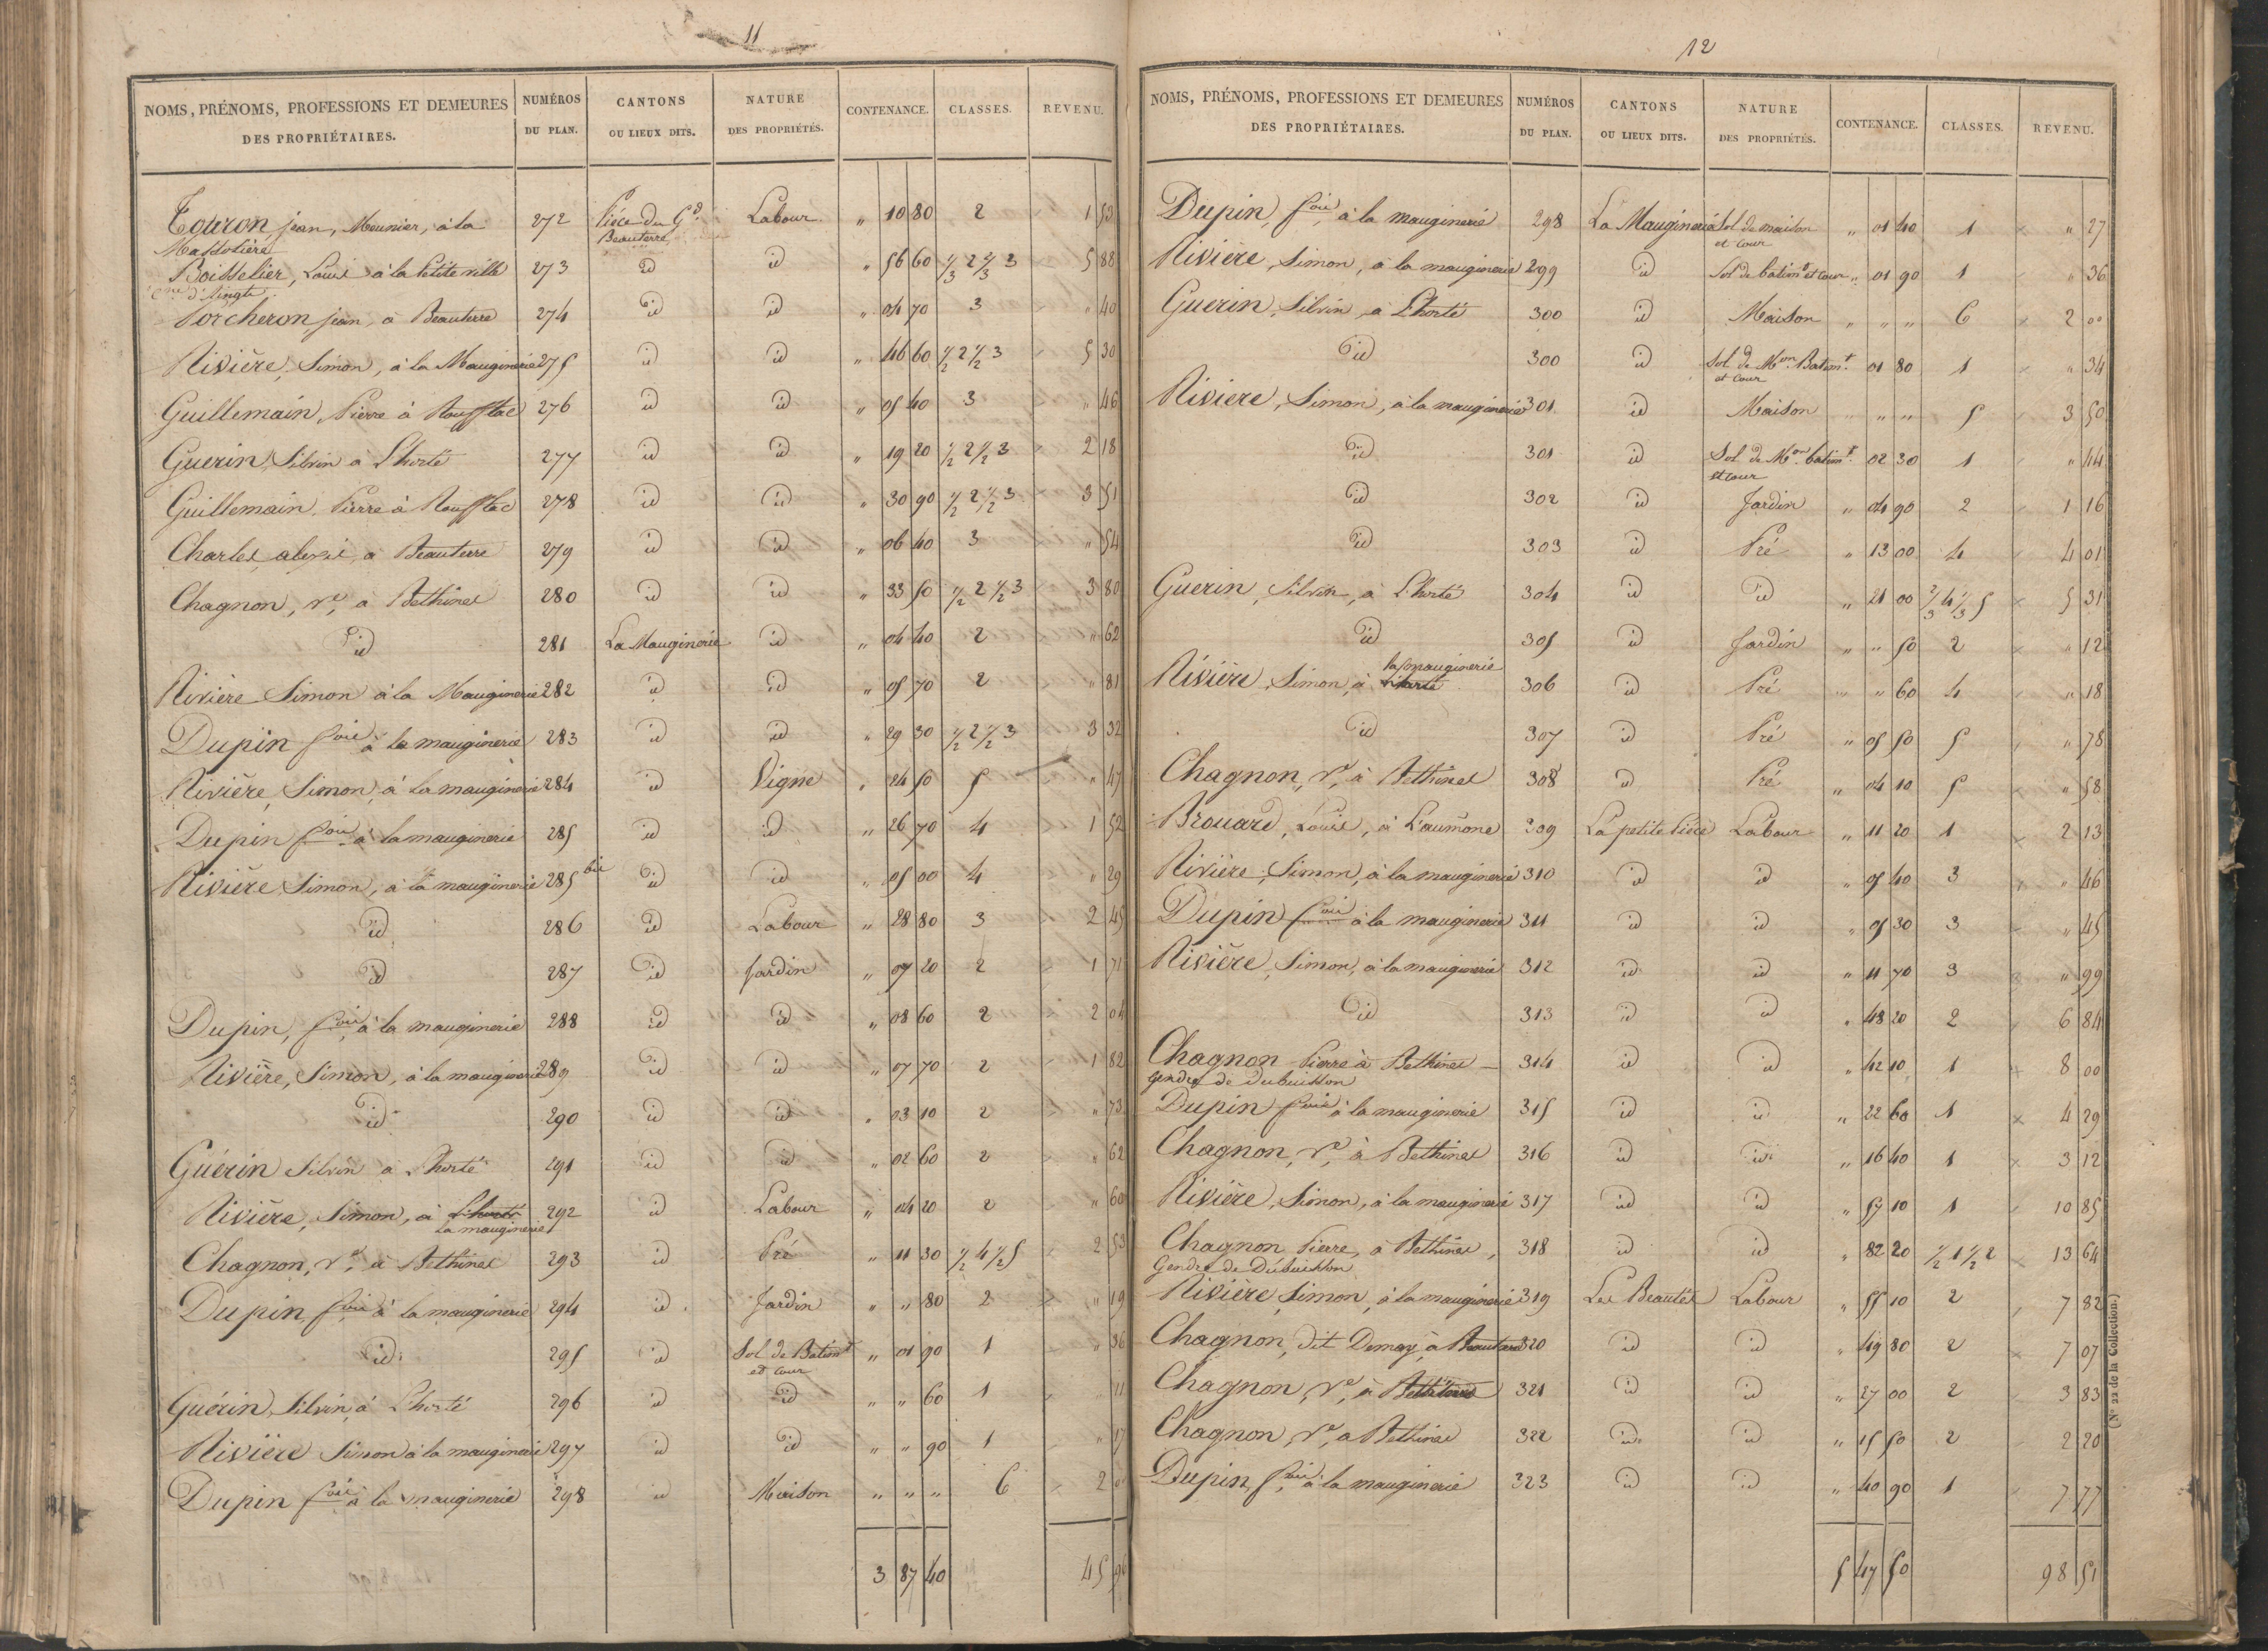 11
NOMS, PRÉNOMS, PROFESSIONS ET DEMEURES DES PROPRIÉTAIRES. NUMÉROS DU PLAN. CANTONS OU LIEUX DITS. NATURE DES PROPRIÉTÉS. CONTENANCE. CLASSES. REVENU.
jean, Meunier, à la 272 Pièce du Gd Beauterre Labour " 10 80 2 1 53
Boisselier, Louis à la Petite ville 273 id id " 56 60 1/3 2 2/3 3 5 88
Porcheron, jean, à Beauterre 274 id id " 04 70 3 " 40
Rivière, Simon, à la Mauginerie 275 id id " 46 60 1/2 2 1/2 3 5 30
Guillemain, Pierre à Moufftac 276 id id " 05 40 3 " 46
Guerin, Silvin à L'horté 277 id id " 19 20 1/2 2 1/2 3 2 18
Guillemain, Pierre à Moufftac 278 id id " 30 90 1/2 2 1/2 3 3 51
Charles, alexis, à Beauterre 279 id id " 06 40 3 " 54
Chagnon, Ve, à Bethines 280 id id " 33 50 1/2 2 1/2 3 3 80
id 281 La Mauginerie id " 04 40 2 " 62
Rivière Simon à la Mauginerie 282 id id " 05 70 2 " 81
Dupin fois à la mauginerie 283 id id " 29 30 1/2 2 1/2 3 3 32
Rivière, Simon, à la mauginerie 284 id Vigne " 24 50 5 " 47
Dupin fois à la mauginerie 285 id id " 26 70 4 1 52
Rivière Simon, à la mauginerie 285 bis id id " 05 00 4 " 29
id 286 id Labour " 28 80 3 2 45
id 287 id Jardin " 07 20 2 1 71
Dupin, fois à la mauginerie 288 id id " 08 60 2 2 04
Rivière, Simon, à la mauginerie 289 id id " 07 70 2 1 82
id 290 id id " 03 10 2 " 73
Guérin Silvin à L'horté 291 id id " 02 60 2 " 62
Rivière, Simon, à L'horté la mauginerie 292 id Labour " 04 20 2 " 60
Chagnon, Ve, à Bethines 293 id Pré " 11 30 1/2 4 1/2 5 2 53
Dupin, fois à la mauginerie 294 id Jardin " " 80 2 " 19
id 295 id Sol de Batimt et cour " 01 90 1 " 36
Guérin, Silvin, à L'horté 296 id id " " 60 1 " 11
Rivière Simon à la mauginerie 297 id id " " 90 1 " 17
Dupin fois à la mauginerie 298 id Maison " " " 6 2
3 87 40 45 96
12
NOMS, PRÉNOMS, PROFESSIONS ET DEMEURES DES PROPRIÉTAIRES. NUMÉROS DU PLAN. CANTONS OU LIEUX DITS. NATURE DES PROPRIÉTÉS. CONTENANCE. CLASSES. REVENU.
Dupin, fois à la mauginerie 298 La Mauginerie Sol de maison et cour " 01 40 1 " 27
Rivière, Simon, à la mauginerie 299 id Sol de batimt et cour " 01 90 1 " 36
Guerin, Silvin, à L'horté 300 id Maison " " " 6 2 00
id 300 id Sol de Mon Batimt et cour 01 80 1 " 34
Riviere, Simon, à la mauginerie 301 id Maison " " " 5 3 50
id 301 id Sol de Mon batimt et cour 02 30 1 " 44
id 302 id Jardin " 04 90 2 1 16
id 303 id Pré " 13 00 4 4 01
Guerin, Silvin, à L'horté 304 id id " 21 00 2/3 4 1/3 5 5 31
id 305 id Jardin " " 50 2 " 12
Rivière, Simon, à L'horté la mauginerie 306 id Pré " " 60 4 " 18
id 307 id Pré " 05 50 5 " 78
Chagnon, Ve, à Bethines 308 id Pré " 04 10 5 " 58
Brouard, Louis, à L'aumône 309 La petite Pièce Labour " 11 20 1 2 13
Rivière, Simon, à la mauginerie 310 id id " 05 40 3 " 46
Dupin fois à la mauginerie 311 id id " 05 30 3 " 45
Rivière, Simon, à la mauginerie 312 id id " 11 70 3 " 99
id 313 id id " 48 20 2 6 84
Chagnon Pierre à Bethines 314 id id " 42 10 1 8 00
Gendre de Dubuisson
Dupin fois à la mauginerie 315 id id " 22 60 1 4 29
Chagnon, Ve, à Bethines 316 id id " 16 40 1 3 12
Rivière, Simon, à la mauginerie 317 id id " 57 10 1 10 85
Chagnon Pierre, à Bethines, 318 id id " 82 20 1/2 1 1/2 2 13 64
Gendre de Dubuisson
Rivière, Simon, à la mauginerie 319 Les Beautés Labour " 55 10 2 7 82
Chagnon, dit Demay, à Beauterre 320 id id " 49 80 2 7 07
Chagnon, Ve, à Bethines 321 id id " 27 00 2 3 83
Chagnon, Ve, a Bethines 322 id id " 15 50 2 2 20
Dupin, fois à la mauginerie 323 id id " 40 90 1 7 77
5 47 50 98 51
(N° 22 de la Collection.)